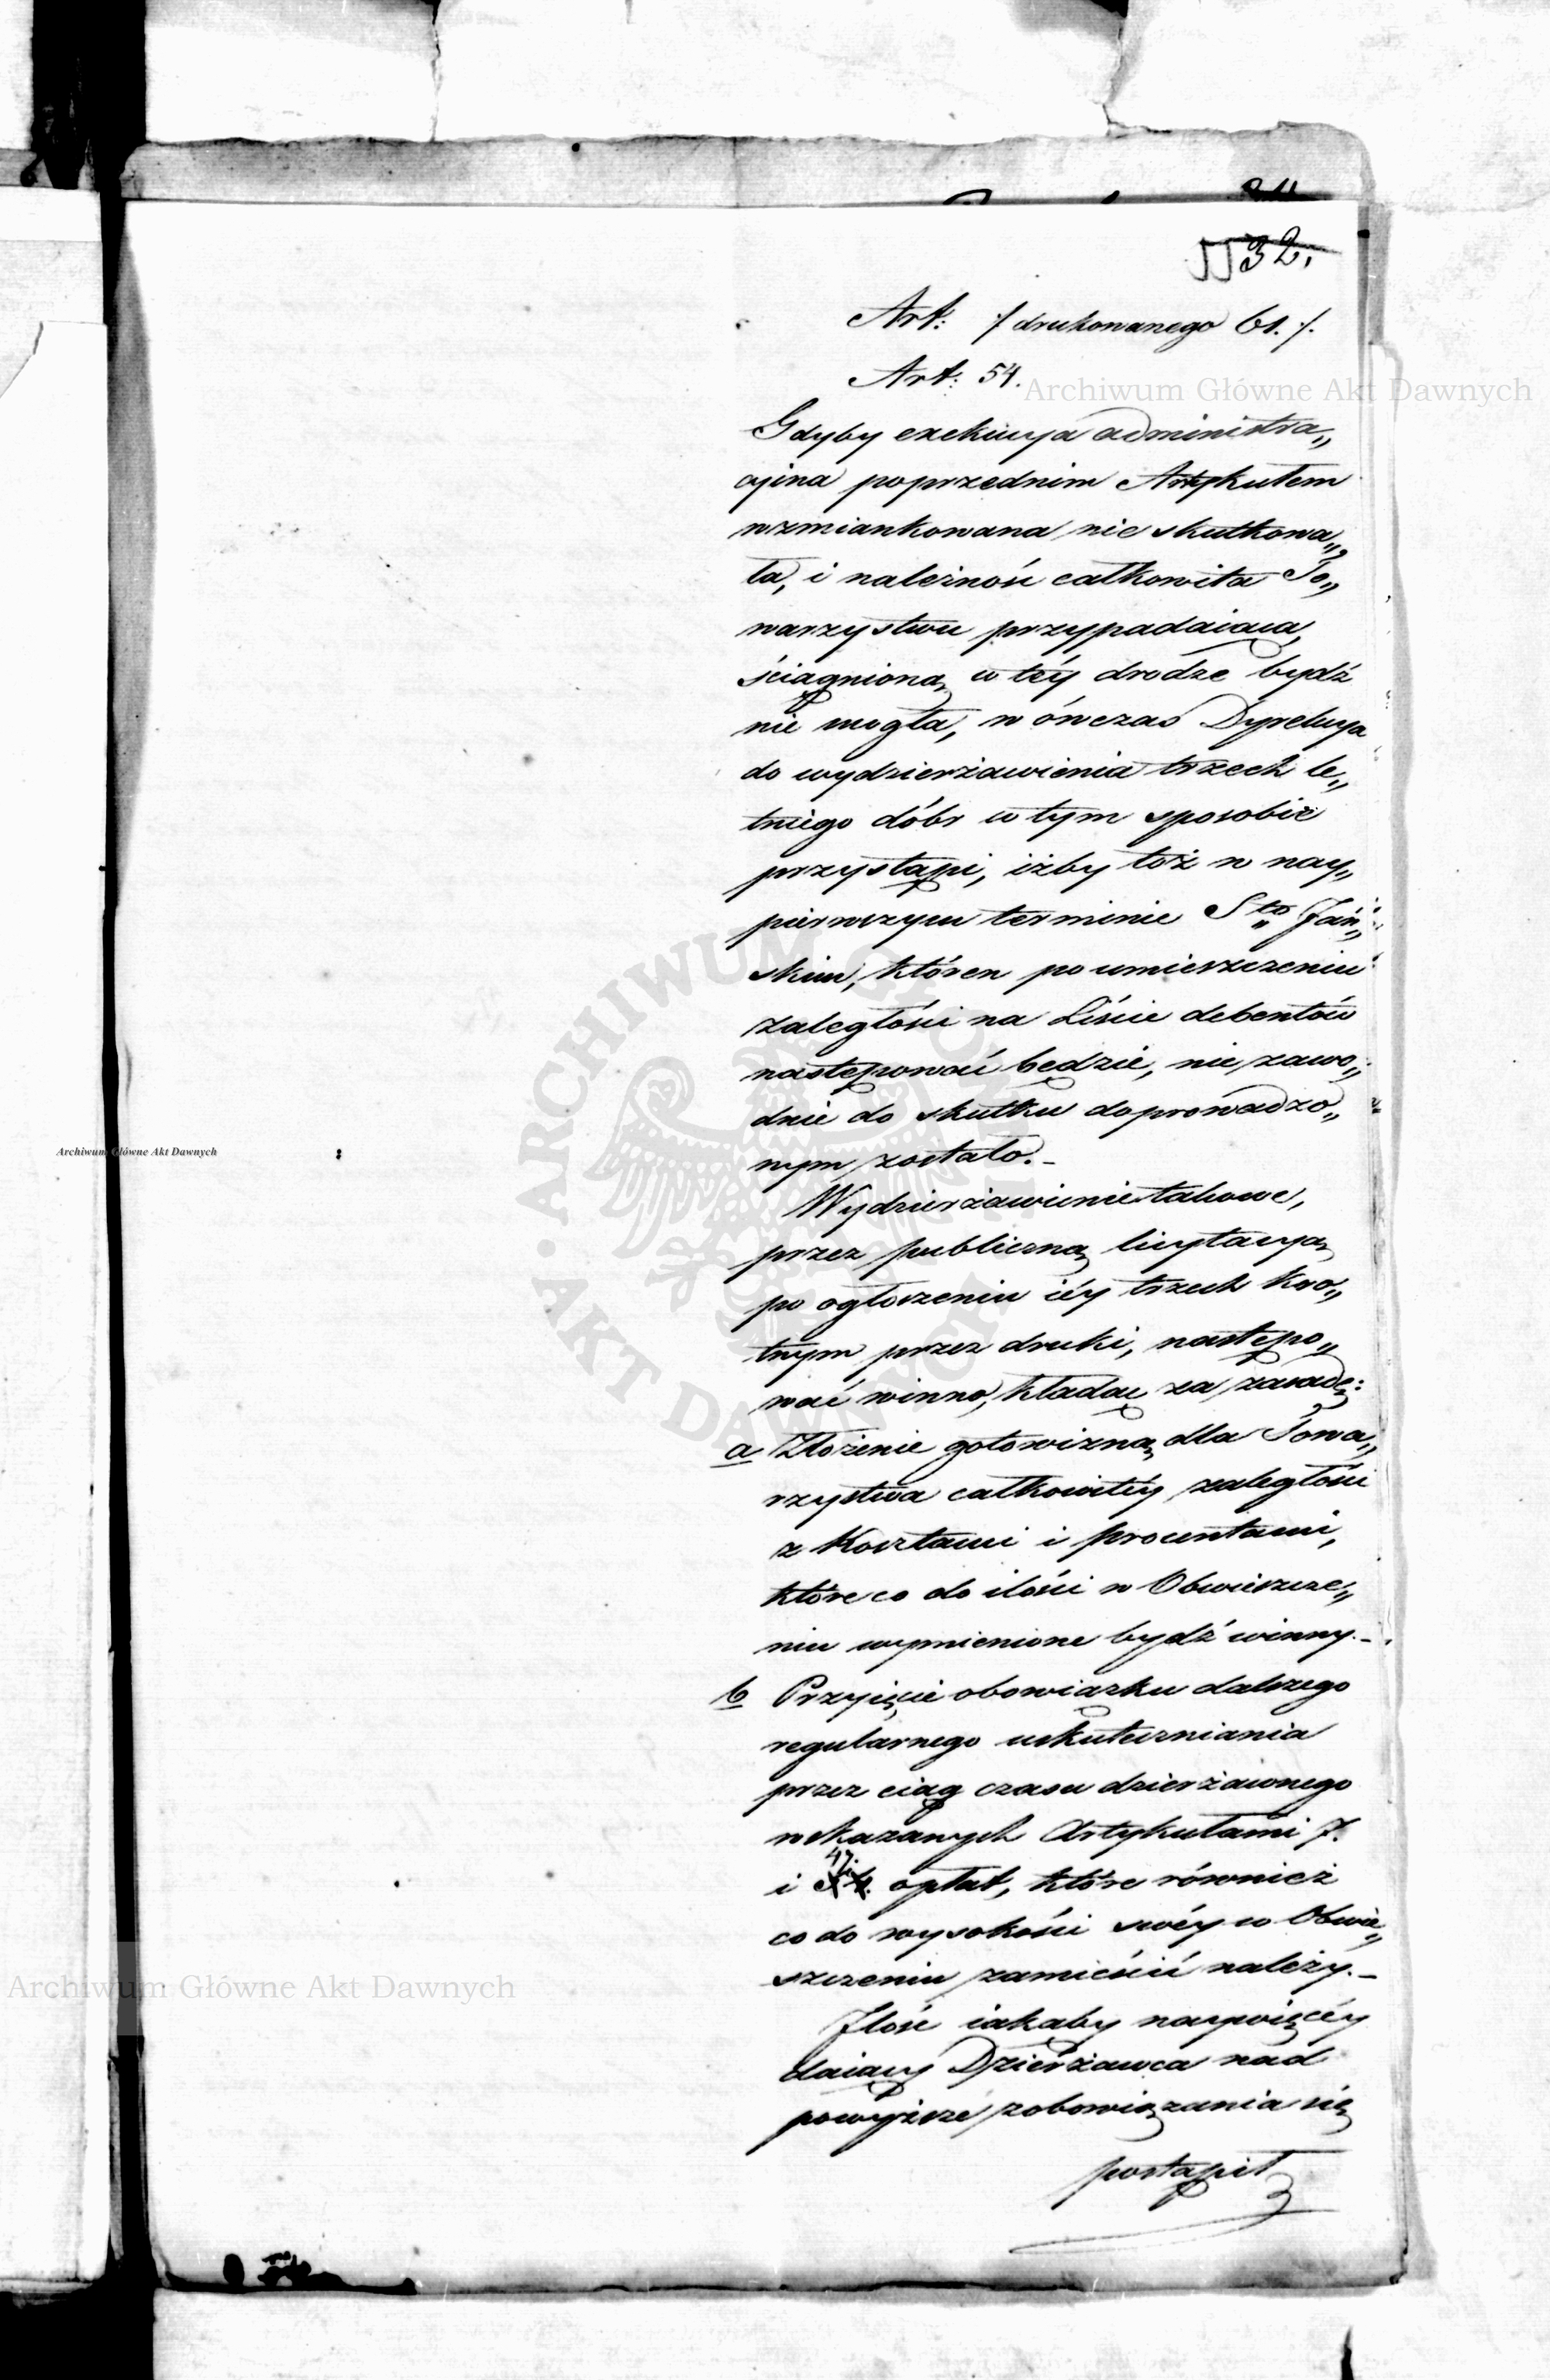 32.
Art: ./ drukowanego 61. /.
Art: 54.
Archiwum Główne Akt Dawnych
Gdyby exekucya administra„
cyina poprzednim Artykułem
wzmiankowana nie skutkowa„
ła, i należność całkowita To„
warzystwu przypadaiąca,
ściągnioną w téy drodze bydź
nie mogła, w ówczas Dyrekcya
do wydzierżawienia trzech le„
tniego dóbr w tym sposobie
przystąpi, iżby toż w nay„
pierwszym terminie Sto Jań„
skim, któren po umieszczeniu
zaległości na Liście debentów
następować będzie, nie zawo„
dnie do skutku doprowadzo„
nym zostało.-
Archiwum Główne Akt Dawnych
Wydzierżawienie takowe,
przez publiczną licytacyą
po ogłoszeniu iéy trzech kro„
tnym przez druki, nastepo„
wać winno, kładąc za zasadę:
a Złożenie gotowizną dla Towa„
rzystwa całkowitéy zaległości
z Kosztami i procentami,
które co do ilości w Obwieszcze„
niu wymienione bydź winny.-
b Przyięcie obowiązku dalszego
regularnego uskuteczniania
przez ciąg czasu dzierżawnego
wskazanych Artykułami 7.
i 47. opłat, które również
co do wysokości swéy w Obwie„
szczeniu zamieścić należy.-
Archiwum Główne Akt Dawnych
Ilość iakaby naywięcéy
daiący Dzierżawca nad
powyższe zobowiązania się
postąpił
ARCHIWUM GŁÓWNE AKT DAWNYCH